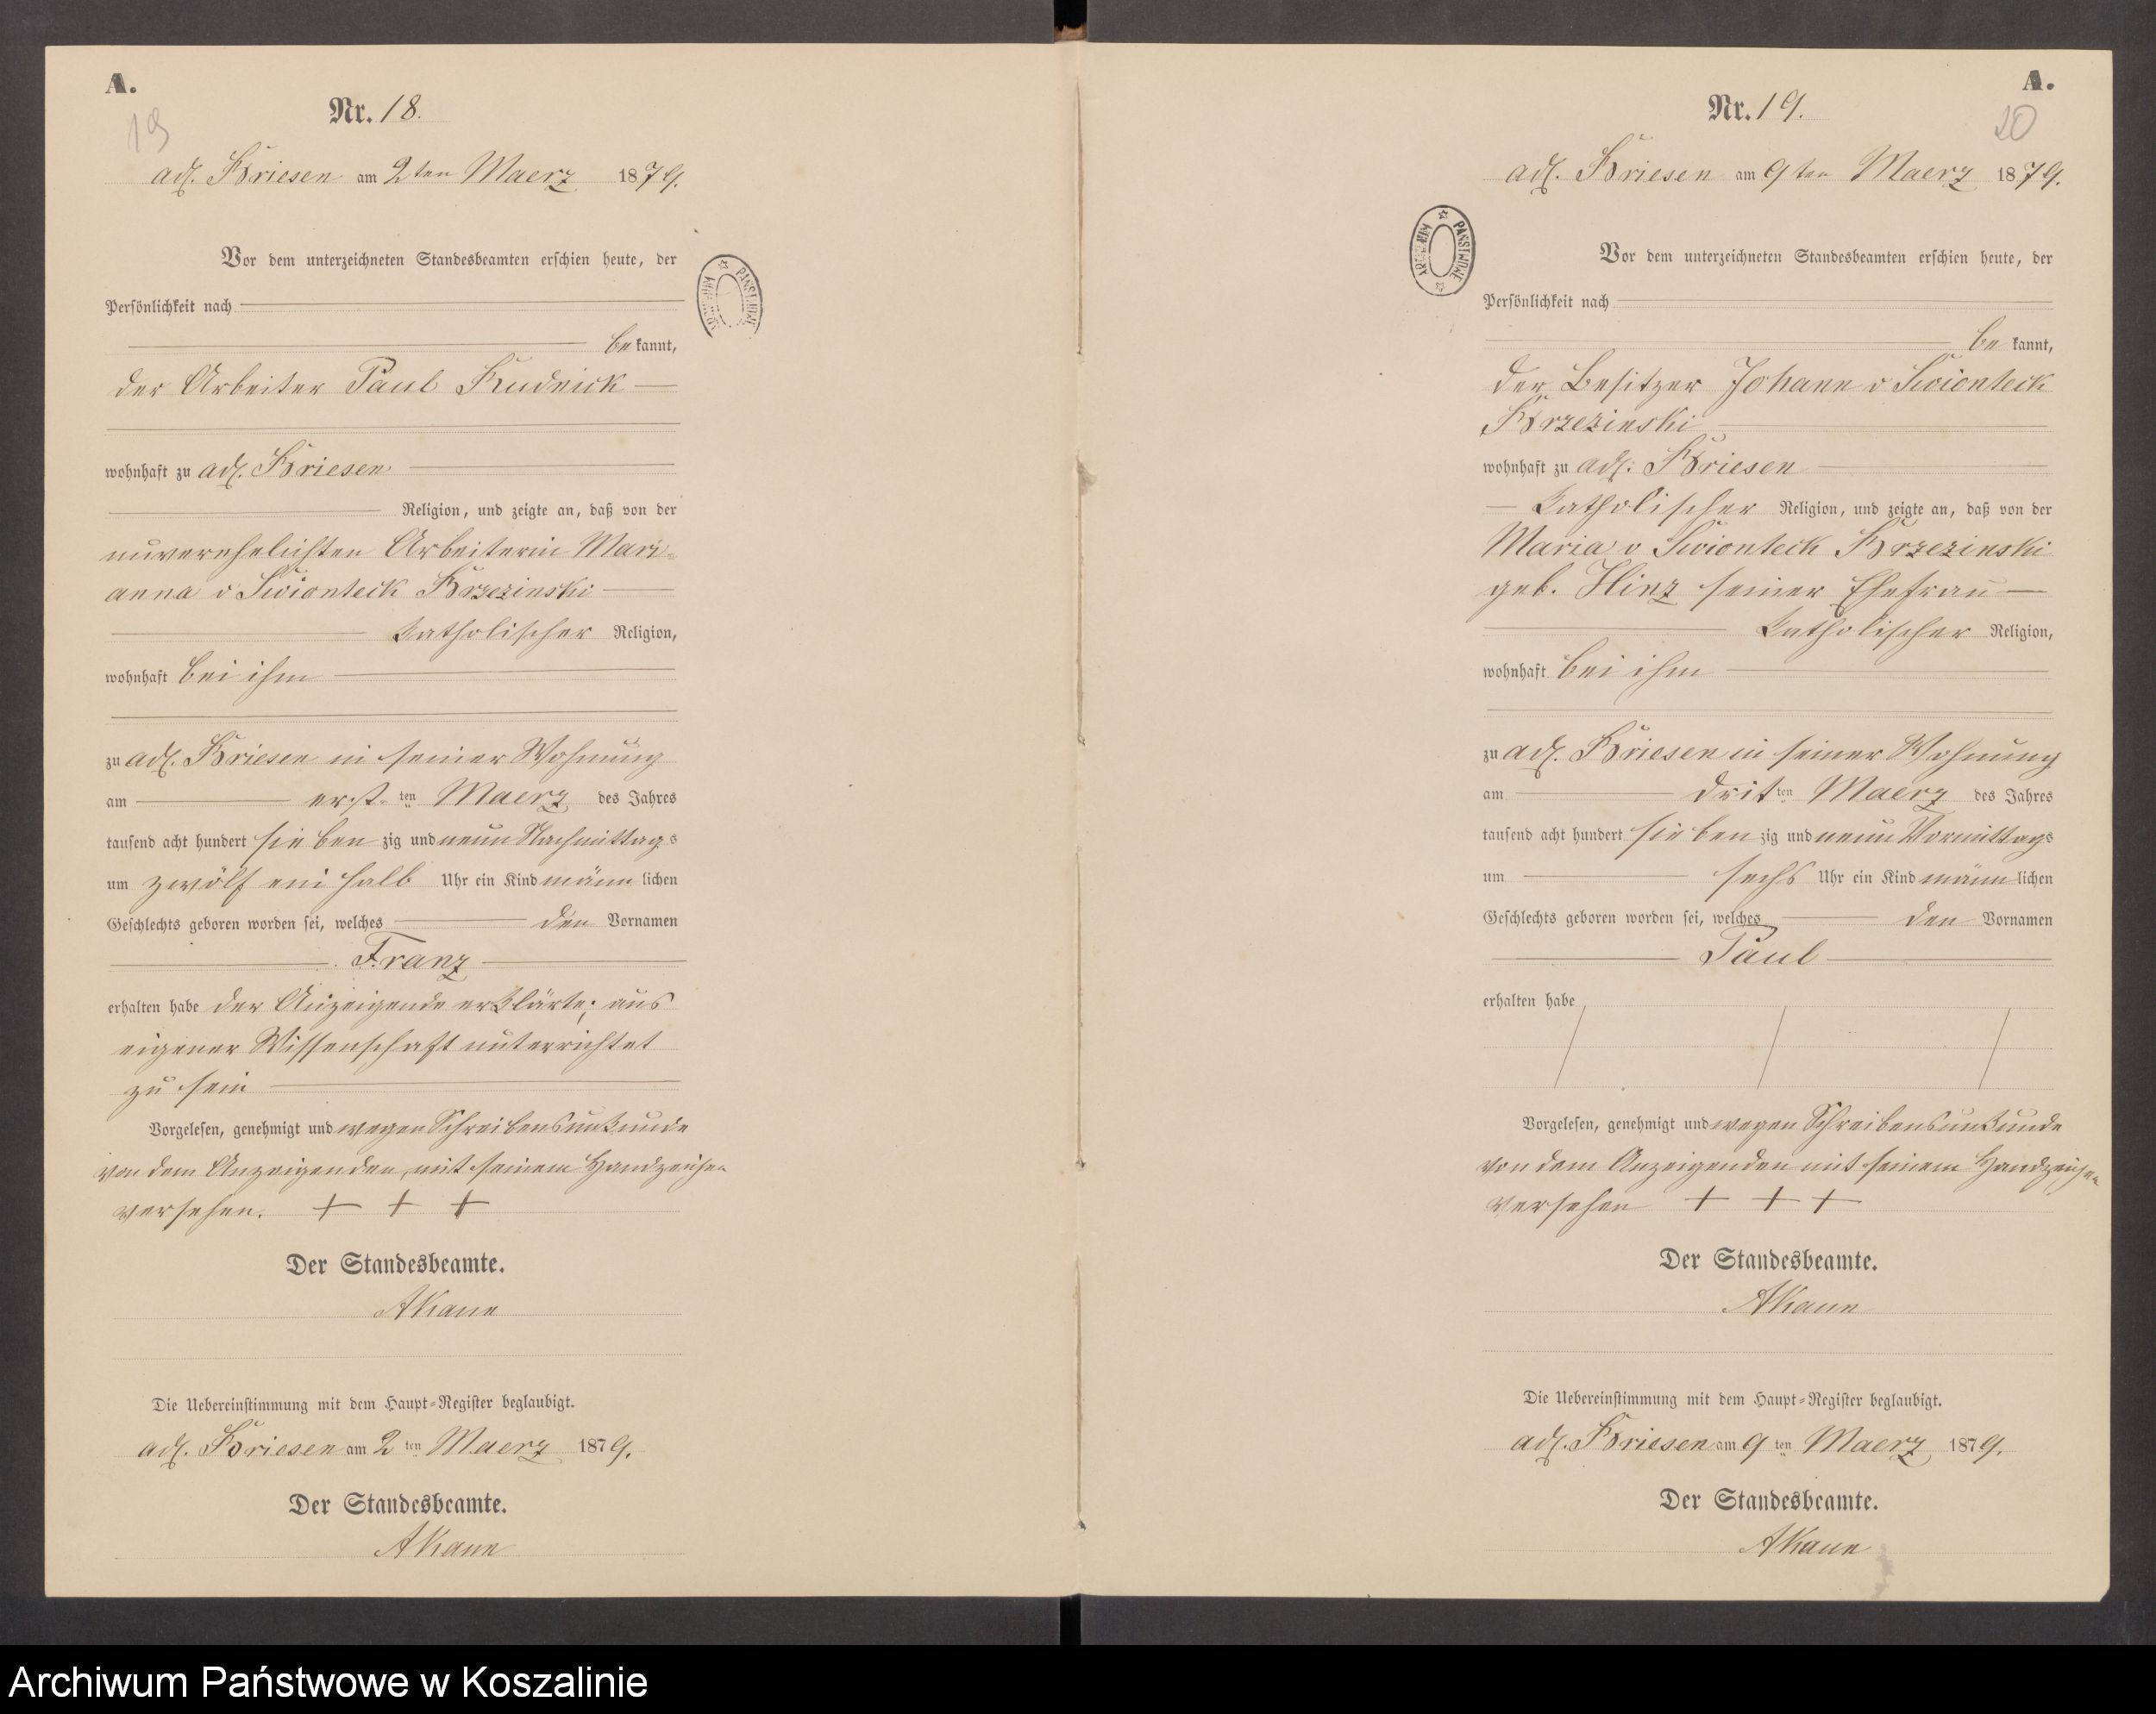 A.
19
Nr. 18.
adl. Briesen am 2ten Maerz 1879.
Vor dem unterzeichneten Standesbeamten erschien heute, der
Persönlichkeit nach
be kannt,
der Arbeiter Paul Rudnick
wohnhaft zu adl. Briesen
Religion, und zeigte an, daß von der
unverehelichten Arbeiterin Mari-
anna v Swionteck Brzezinski
katholischer Religion,
wohnhaft bei ihm
zu adl. Briesen in seiner Wohnung
am erst ten Maerz des Jahres
tausend acht hundert sieben zig und neun Nachmittags
um zwölf ein halb Uhr ein Kind männ lichen
Geschlechts geboren worden sei, welches den Vornamen
Franz
erhalten habe der Anzeigende erklärte, aus
eigener Wissenschaft unterrichtet
zu sein
Vorgelesen, genehmigt und wegen Schreibensunkunde
von dem Anzeigenden, mit seinem Handzeichen
versehen. + + +
Der Standesbeamte.
AKaun
Die Uebereinstimmung mit dem Haupt-Register beglaubigt.
adl. Briesen am 2 ten Maerz 1879.
Der Standesbeamte.
AKaun
ARCHIWUM PAŃSTWOWE
A.
20
Nr. 19.
adl. Briesen am 9ten Maerz 1879.
Vor dem unterzeichneten Standesbeamten erschien heute, der
Persönlichkeit nach
be kannt,
der Besitzer Johann v Swionteck
Brzezinski
wohnhaft zu adl. Briesen
katholischer Religion, und zeigte an, daß von der
Maria v Swionteck Brzezinski
geb. Hinz seiner Ehefrau
katholischer Religion,
wohnhaft bei ihm
zu adl. Briesen in seiner Wohnung
am drit ten Maerz des Jahres
tausend acht hundert sieben zig und neun Vormittags
um sechs Uhr ein Kind männ lichen
Geschlechts geboren worden sei, welches den Vornamen
Paul
erhalten habe
Vorgelesen, genehmigt und wegen Schreibensunkunde
von dem Anzeigenden mit seinem Handzeichen
versehen + + +
Der Standesbeamte.
AKaun
Die Uebereinstimmung mit dem Haupt-Register beglaubigt.
adl. Briesen am 9 ten Maerz 1879.
Der Standesbeamte.
AKaun
ARCHIWUM PAŃSTWOWE
Archiwum Państwowe w Koszalinie